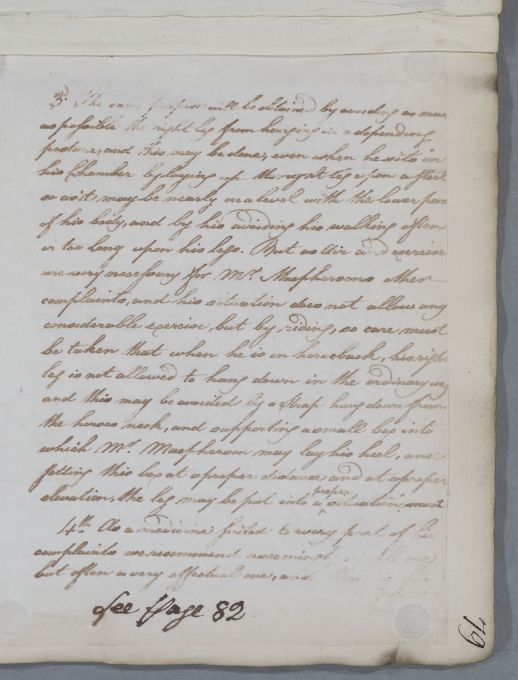 3d. The same purpose will be obtained by avoiding as much
as possible the right leg from hanging in a depending
posture, and this may be done, even when he sits in
his Chamber by laying up the right leg upon a Stool
so as it may be nearly on a level with the lower part
of his body, and by his avoiding his walking often
or too long upon his legs. But as Air and exercise
are very necessary for Mr. Macphersons other
complaints, and his situation does not allow any
considerable exercise, but by riding, so care must
be taken that when he is on horseback, his right
leg is not allowed to hang down in the ordinary way
and this may be avoided by a strap hung down from
the horses neck, and supporting a small box into
which Mr. Macpherson may lay his heel, and
fitting this box at a proper distance and at a proper
elevation, the leg may be put into a proper situation
4th. As a medicine suited to every part of his
complaints we recommend
but often a very effectual one, and
See Page 82
79